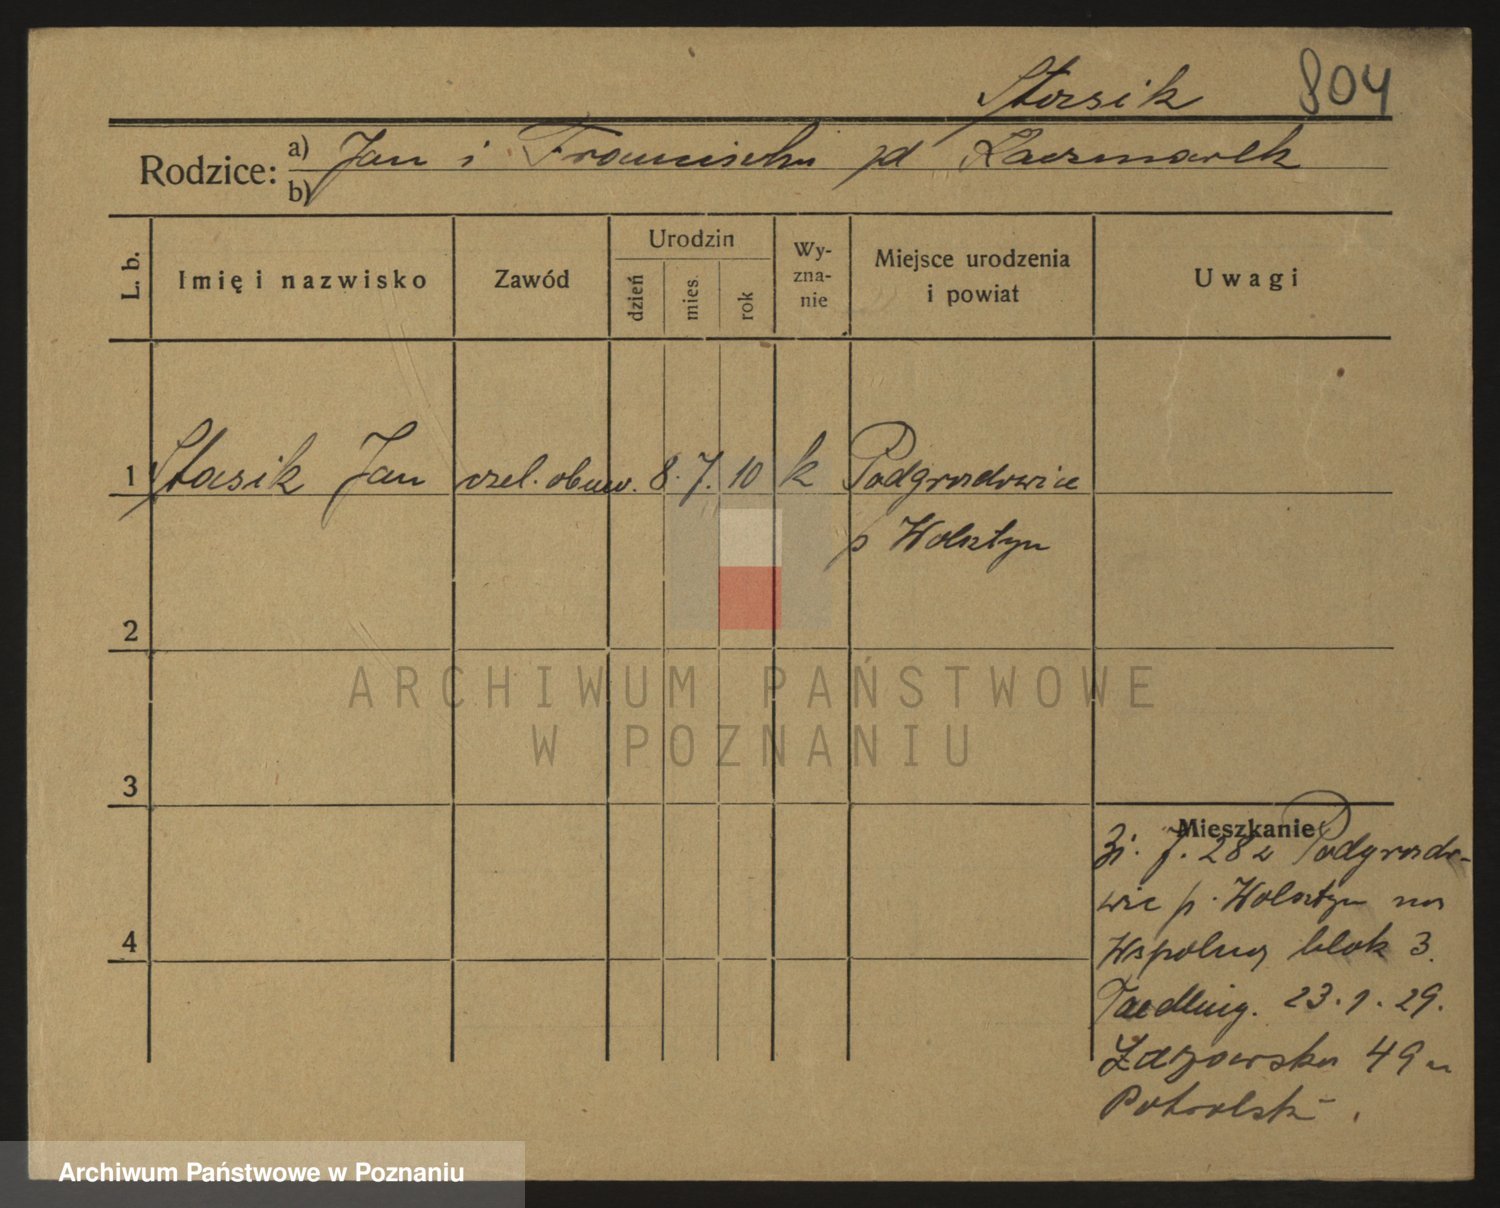 Stasik 804
Rodzice: a) Jan i Franciszka zd Kaczmarek
b)
L. b. Imię i nazwisko Zawód Urodzin dzień mies. rok Wy-zna-nie Miejsce urodzenia i powiat Uwagi
1 Stasik Jan czel. obuw. 8. 7. 10 k Podgradowice
p Wolsztyn
2
3
4
Mieszkanie
7. 28 z Podgrado-
wic p. Wolsztyn na
Wspolną blok 3.
23. 1. 29.
49 u
ARCHIWUM PAŃSTWOWE
W POZNANIU
Archiwum Państwowe w Poznaniu